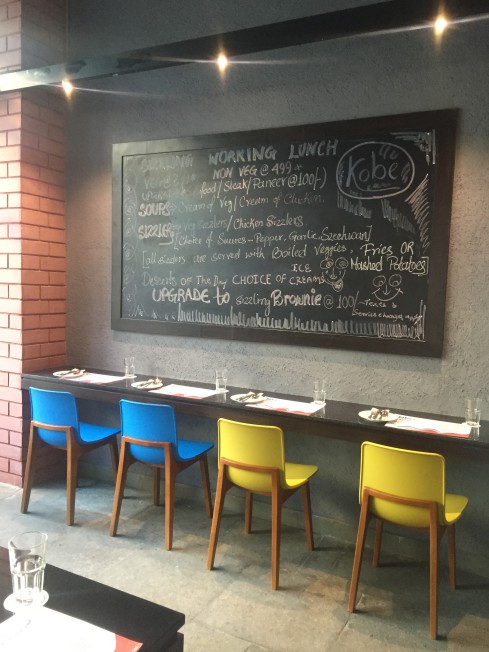 SIZZLING WORKING LUNCH
NON VEG @ 499 +
food/Steak/Paneer @ 100/-)
SOUPS Cream of Veg/Cream of Chicken
SIZZLERS Veg Sizzlers/Chicken Sizzlers
[Choice of Sauces - Pepper, Garlic, Szechwan]
[all sizzlers are served with Boiled Veggies, Fries OR
Mashed Potatoes]
Desserts of The Day CHOICE OF ICE CREAMS
UPGRADE to sizzling Brownie @ 100/-
Taxes &
Service charges
Kobe